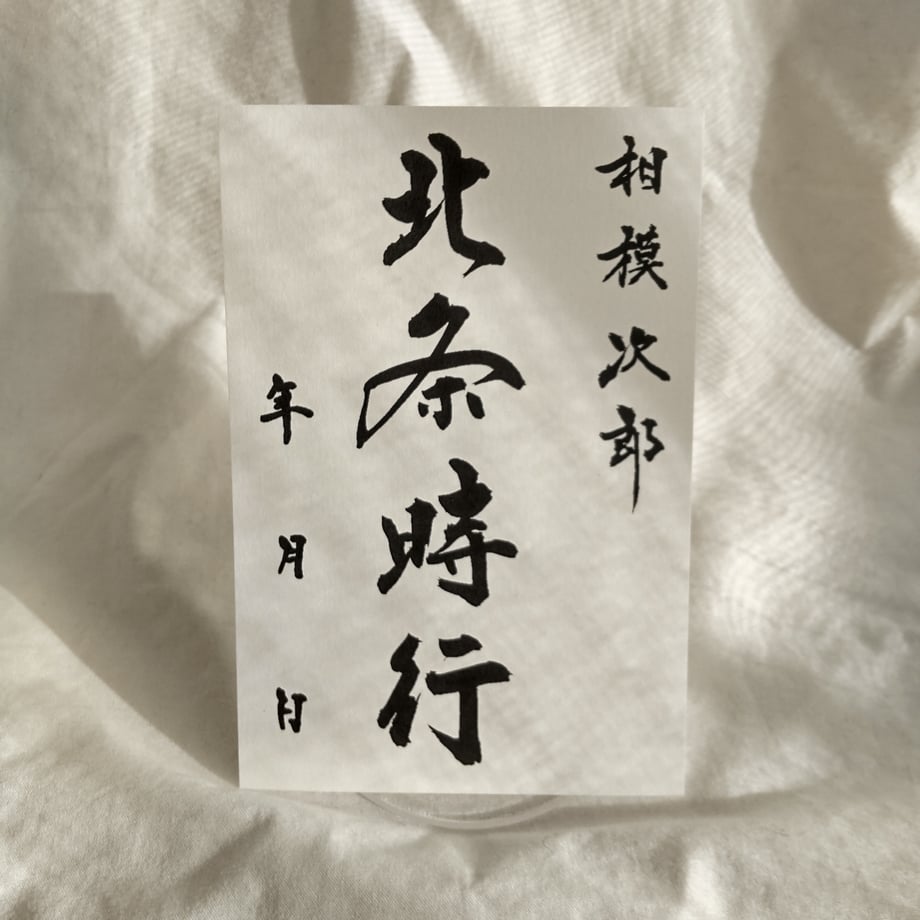 相模次郎
北条時行
年月日